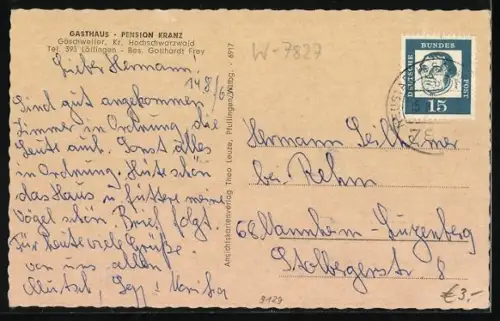 GASTHAUS - PENSION KRANZ
Göschweiler, Kr. Hochschwarzwald
Tel. 393 Löffingen - Bes. Gotthardt Frey
W-7827
Lieber Hermann!
14.8/63
Sind gut angekommen
Zimmer in Ordnung, die
Leute auch. Sonst alles
in Ordnung. Hüte schön
das Haus u. füttere meine
Vögel schön. Brief folgt.
Für heute viele Grüße
von uns allen
Mutsch,
Ansichtskartenverlag Theo Leuze, Pfullingen/Wttbg. - 6917
DEUTSCHE BUNDES POST
15
Hermann
bei Rehm
68 Mannheim-Luzenberg
Stolbergerstr. 8
9129
€3,-